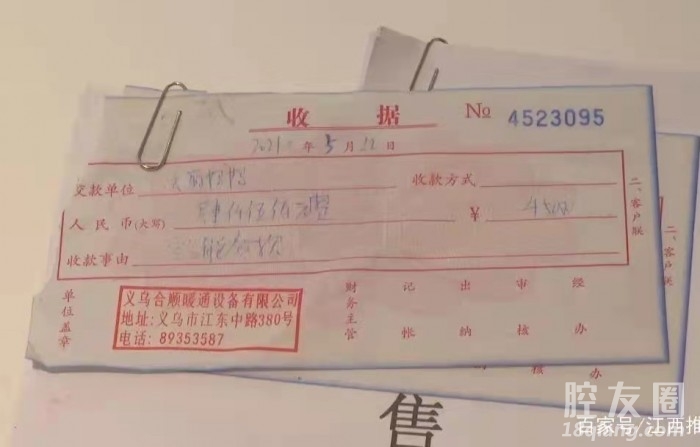 收 据 № 4523095
2021 年 5 月 22 日
交款单位 收款方式
人民币(大写) 肆仟伍佰元整 ￥ 4500
收款事由
二、客户联
单位盖章
义乌合顺暖通设备有限公司
地址:义乌市江东中路380号
电话: 89353587
财务主管 记帐 出纳 审核 经办
核 办
二、客户联
售
腔友圈
18qiang.com
百家号/江西推